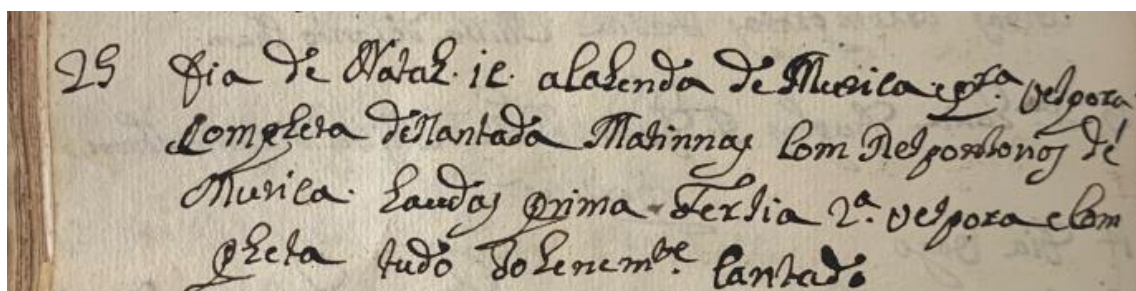 25 Dia de Natal. ie. a Calenda de Musica e pra. vespora
Completa de Cantada Matinnas Com Responsorios de
Musica. Laudas prima Tersia 2ª. vespora e Com
pleta tudo Solenemte. Cantado